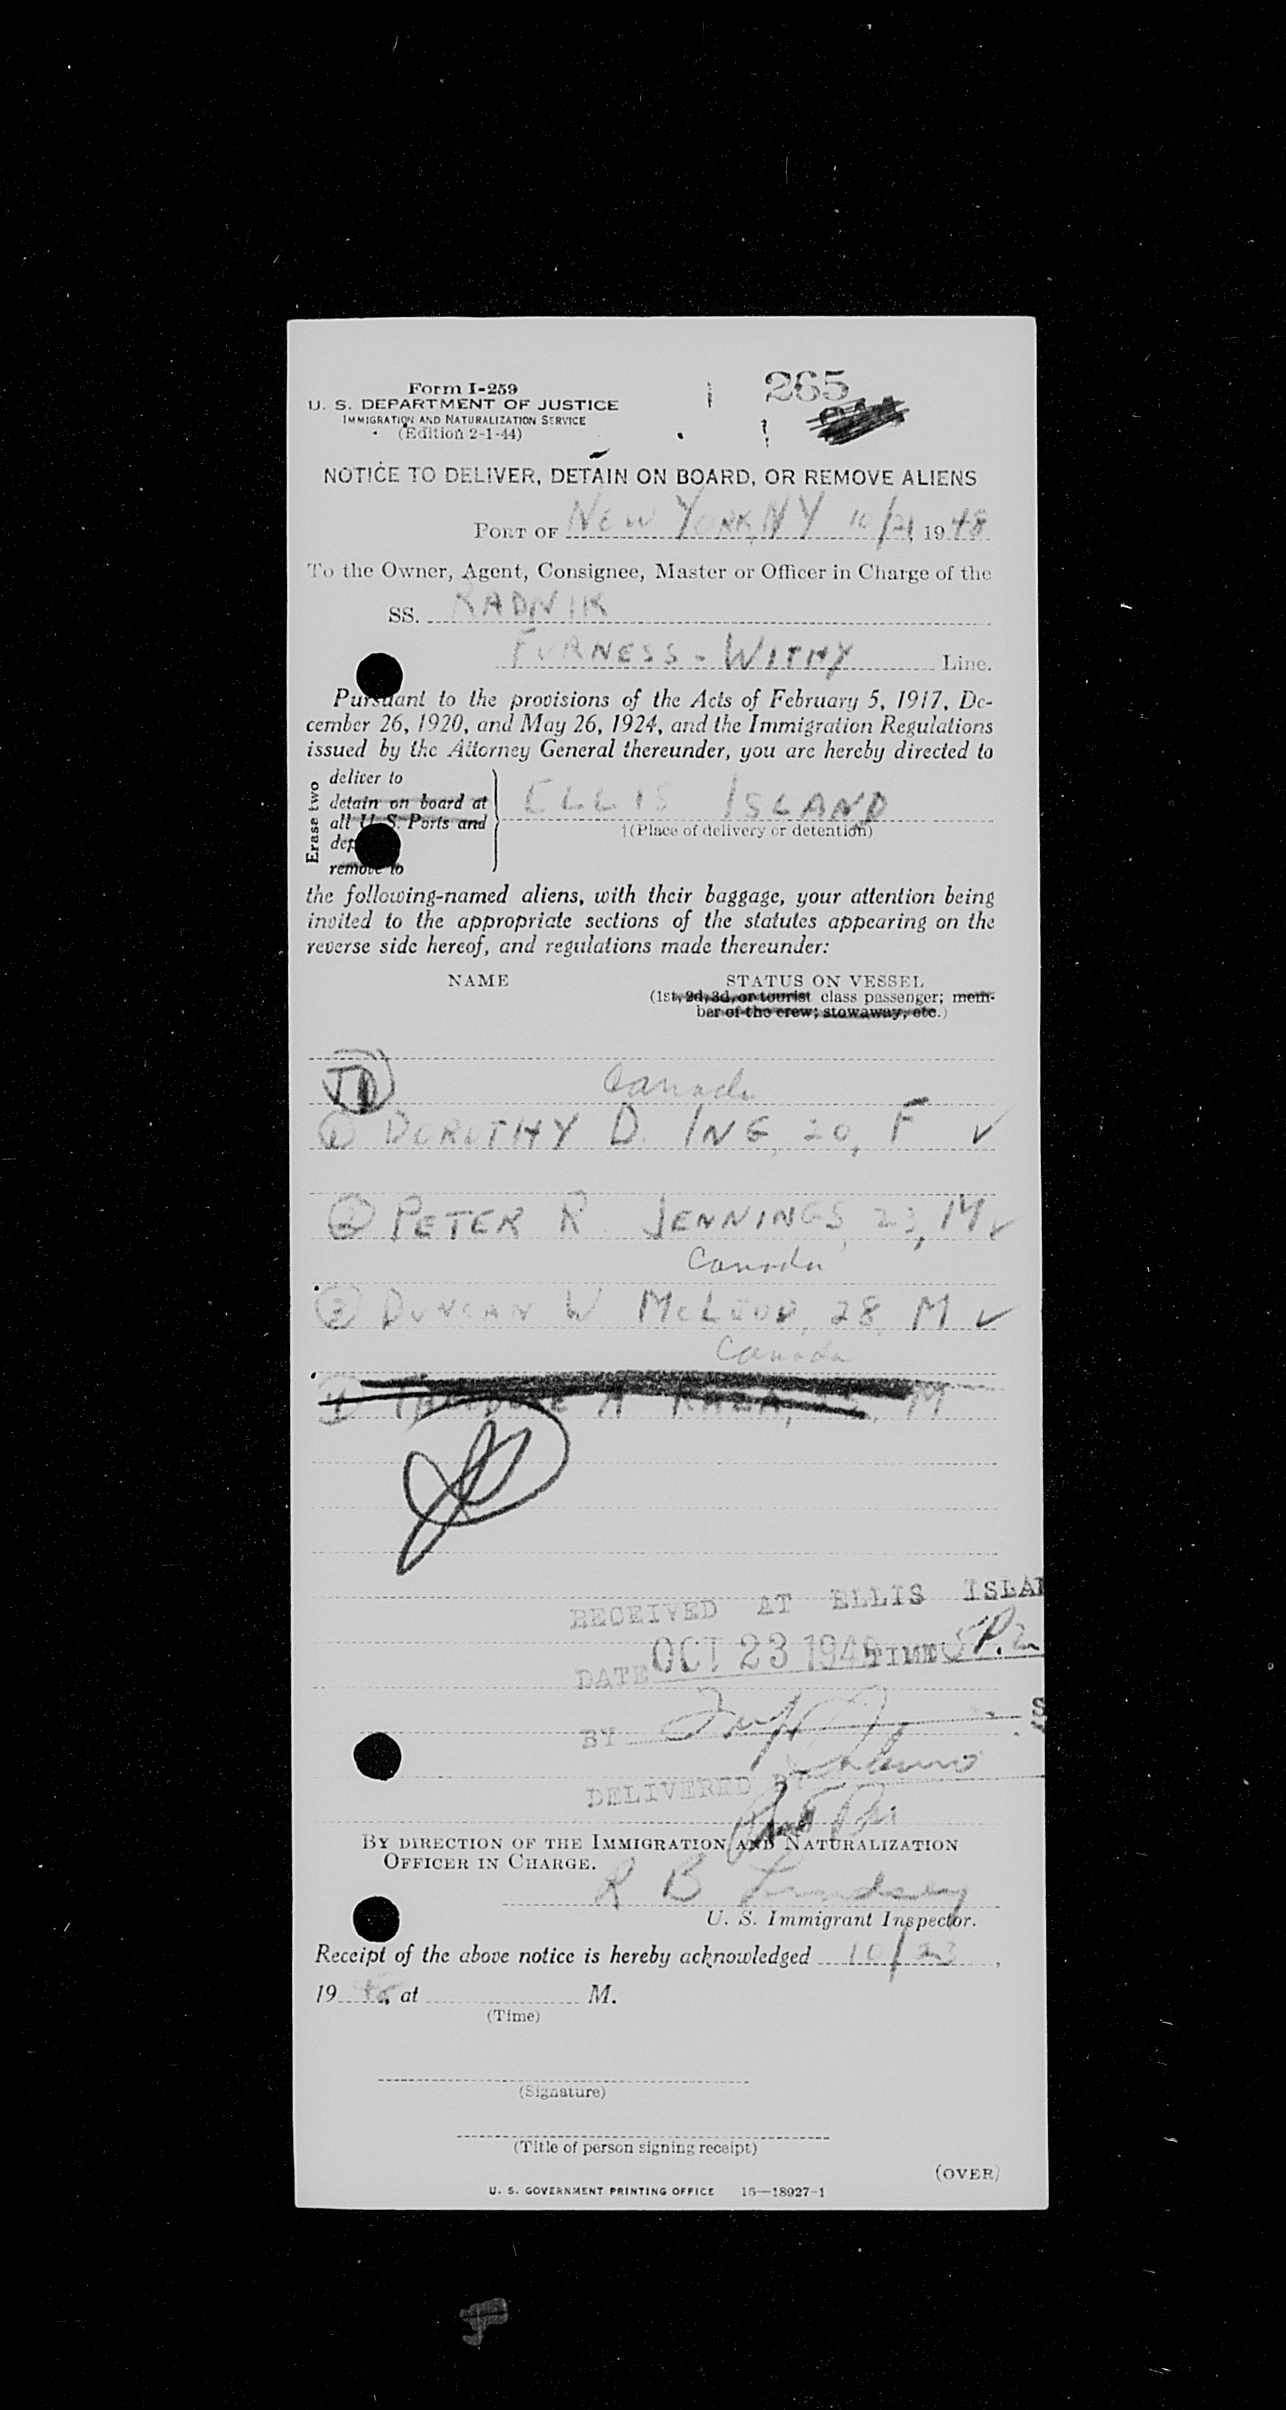 265
Form I-259
U. S. DEPARTMENT OF JUSTICE
IMMIGRATION AND NATURALIZATION SERVICE
(Edition 2-1-44)
NOTICE TO DELIVER, DETAIN ON BOARD, OR REMOVE ALIENS
PORT OF NEW YORK, NY 10/21 1948
To the Owner, Agent, Consignee, Master or Officer in Charge of the
SS. RADNIK
FURNESS-WITHY Line.
Pursuant to the provisions of the Acts of February 5, 1917, De-
cember 26, 1920, and May 26, 1924, and the Immigration Regulations
issued by the Attorney General thereunder, you are hereby directed to
Erase two
deliver to
detain on board at
all U. S. Ports and
dep
remove to
ELLIS ISLAND
†(Place of delivery or detention)
the following-named aliens, with their baggage, your attention being
invited to the appropriate sections of the statutes appearing on the
reverse side hereof, and regulations made thereunder:
NAME STATUS ON VESSEL
(1st, 2d, 3d, or tourist class passenger; mem-
ber of the crew; stowaway, etc.)
Canada
1 DOROTHY D. ING, 20, F ✓
2 PETER R JENNINGS, 23, M ✓
Canada
3 DUNCAN W McLEOD, 28, M ✓
Canada
M
RECEIVED AT ELLIS ISLAN
DATE OCT 23 194 TIME 5 P.
BY
DELIVERED BY
BY DIRECTION OF THE IMMIGRATION AND NATURALIZATION
OFFICER IN CHARGE.
R B Lindsey
U. S. Immigrant Inspector.
Receipt of the above notice is hereby acknowledged 10/23,
19 48, at M.
(Time)
(Signature)
(Title of person signing receipt)
(OVER)
U. S. GOVERNMENT PRINTING OFFICE 16—18927-1